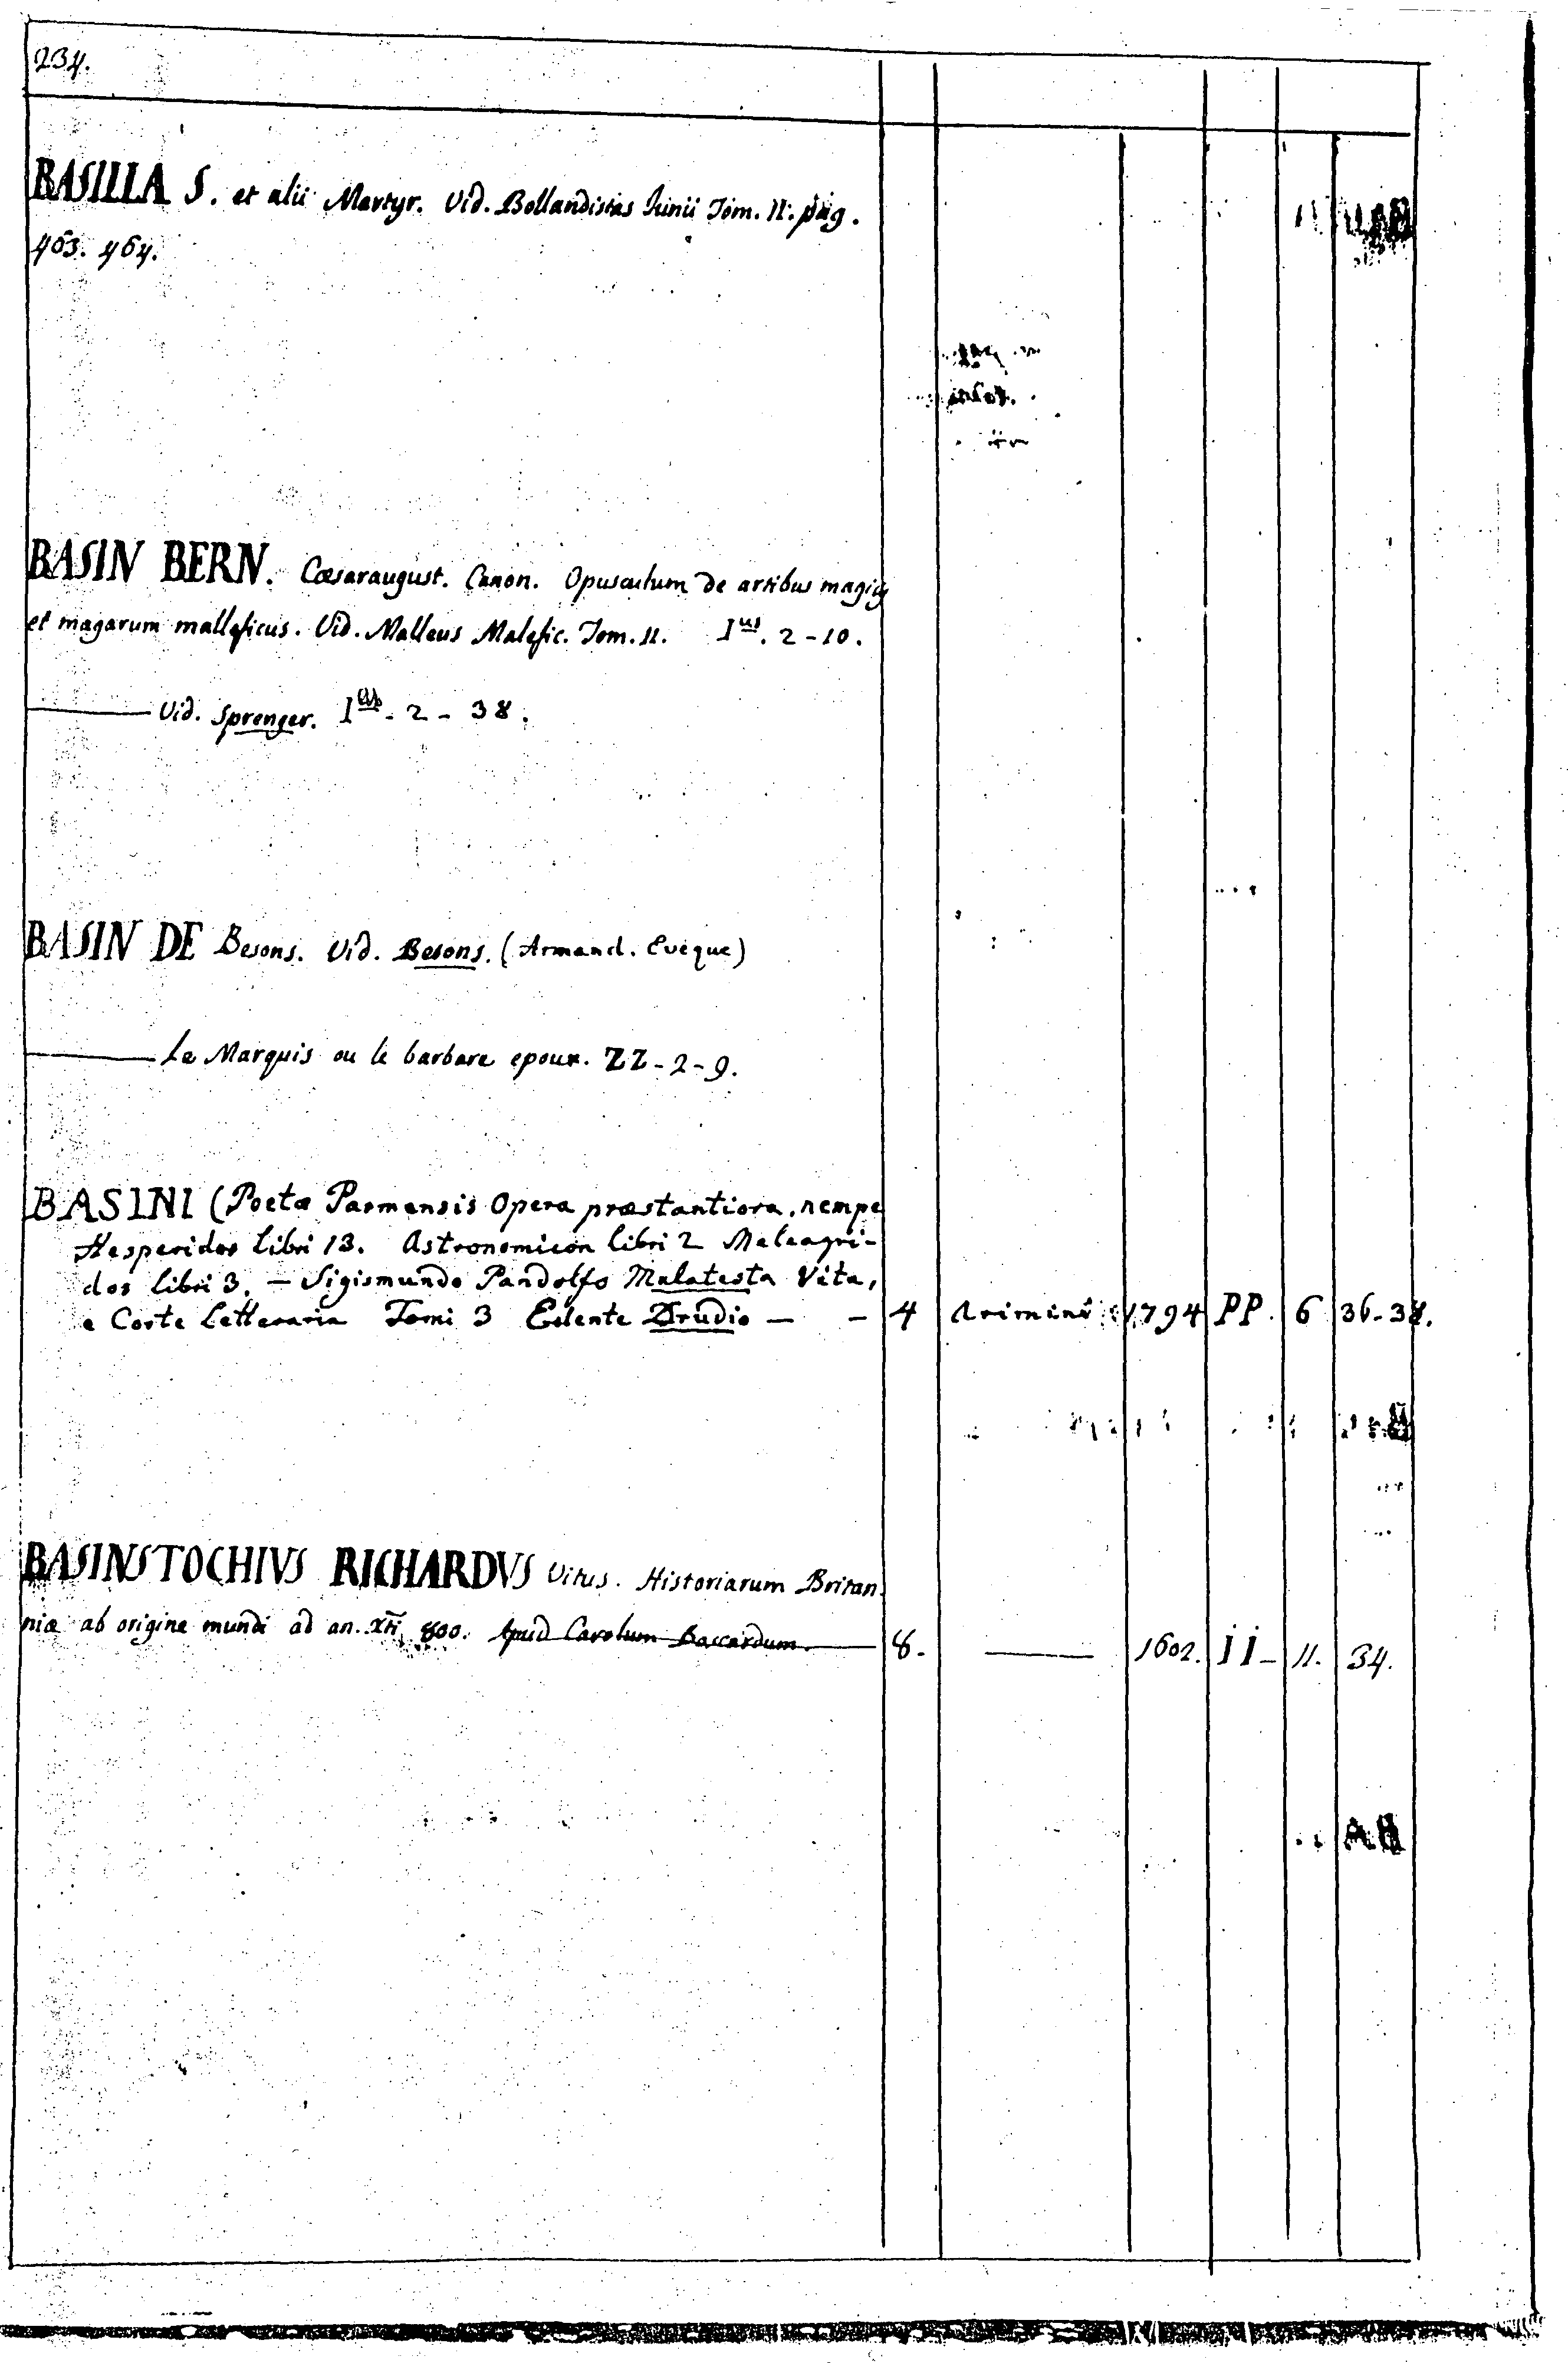 234.
BASILLA S. et alii Martyr. Vid. Bollandistas Iunii Tom. II. pag.
463. 464.
BASIN BERN. Cæsaraugust. Canon. Opusculum de artibus magicis
et magarum malleficus. Vid. Malleus Malefic. Tom. II. I. 2-10.
Vid. Sprenger. I. 2-38.
BASIN DE Besons. Vid. Besons. (Armand. Evêque)
Le Marquis ou le barbare epoux. ZZ-2-9.
BASINI (Poetæ Parmensis Opera præstantiora, nempe
Hesperidos libri 13. Astronomicon libri 2 Meleagri-
dos libri 3. — Sigismundo Pandolfo Malatesta Vita,
e Corte Letteraria Tomi 3 Edente Drudio — — 4 Arimini 1794 PP. 6 36-38.
BASINSTOCHIVS RICHARDVS Vitus. Historiarum Britan
niæ ab origine mundi ad an. 800. Apud Carolum Boscardum. 8. — 1602. ii- 11. 34.